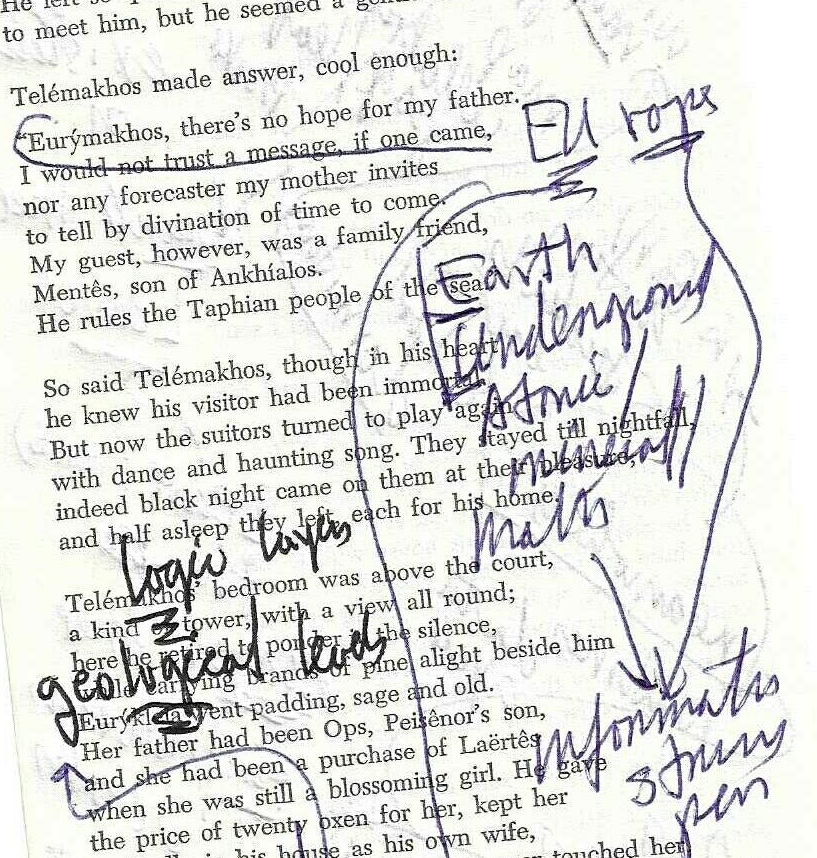 He left
to meet him, but he seemed a
Telémakhos made answer, cool enough:
"Eurýmakhos, there's no hope for my father.
I would not trust a message, if one came,
nor any forecaster my mother invites
to tell by divination of time to come.
My guest, however, was a family friend,
Mentês, son of Ankhíalos.
He rules the Taphian people of the sea."
So said Telémakhos, though in his heart
he knew his visitor had been immortal.
But now the suitors turned to play again
with dance and haunting song. They stayed till nightfall,
indeed black night came on them at their pleasure,
and half asleep they left, each for his home.
Telémakhos' bedroom was above the court,
a kind of tower, with a view all round;
here he retired to ponder in the silence,
carrying brands of pine alight beside him
Eurýkleia went padding, sage and old.
Her father had been Ops, Peisênor's son,
and she had been a purchase of Laërtês
when she was still a blossoming girl. He gave
the price of twenty oxen for her, kept her
in his house as his own wife,
touched her
EU rope
Earth
Underground
Atomic
mineral
Math
logic layers
geological levels